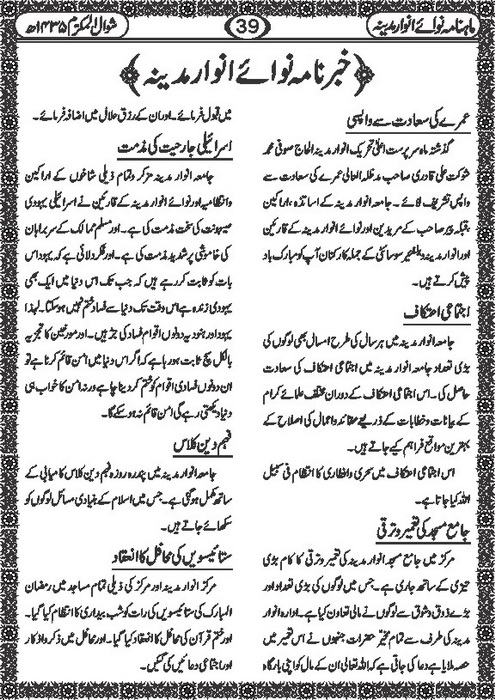 ماہنامہ نوائے انوار مدینہ
39
شوال المکرم ۱۴۳۵ھ
خبر نامہ نوائے انوار مدینہ
عمرے کی سعادت سے واپسی
گذشتہ ماہ سرپرست اعلیٰ تحریک انوار مدینہ الحاج صوفی محمد
شوکت علی قادری صاحب مدظلہ العالی عمرے کی سعادت سے
واپس تشریف لائے۔ جامعہ انوار مدینہ کے اساتذہ، اراکین
جبکہ پیر صاحب کے مریدین اور نوائے انوار مدینہ کے قارئین
اور انوار مدینہ ویلفیئر سوسائٹی کے جملہ کارکنان آپ کو مبارک باد
پیش کرتے ہیں۔
اجتماعی اعتکاف
جامعہ انوار مدینہ میں ہر سال کی طرح امسال بھی لوگوں کی
بڑی تعداد جامعہ انوار مدینہ میں اجتماعی اعتکاف کی سعادت
حاصل کی۔ اس اجتماعی اعتکاف کے دوران مختلف علمائے کرام
کے بیانات و خطابات کے ذریعے عقائد و اعمال کی اصلاح کے
بہترین مواقع فراہم کیے جاتے ہیں۔
اس اجتماعی اعتکاف میں سحری و افطاری کا انتظام فی سبیل
اللہ کیا جاتا ہے۔
جامع مسجد کی تعمیر و ترقی
مرکز میں جامع مسجد انوار مدینہ کی تعمیر و ترقی کا کام بڑی
تیزی کے ساتھ جاری ہے۔ جس میں لوگوں کی بڑی تعداد اور
بڑے ذوق و شوق سے لوگوں نے مالی تعاون کیا ہے۔ ادارہ انوار
مدینہ کی طرف سے تمام مخیر حضرات جنہوں نے اس تعمیر میں
حصہ ملایا ہے دعا کی جاتی ہے کہ اللہ تعالیٰ ان کے مال کو اپنی بارگاہ
میں قبول فرمائے۔ اور ان کے رزق حلال میں اضافہ فرمائے۔
اسرائیلی جارحیت کی مذمت
جامعہ انوار مدینہ مرکز و تمام ذیلی شاخوں کے اراکین
و انتظامیہ اور نوائے انوار مدینہ کے قارئین نے اسرائیلی یہودی
صیہونت کی سخت مذمت کی ہے۔ اور مسلم ممالک کے سربراہان
کی خاموشی پر شدید مذمت کی ہے۔ اور فکر دلائی ہے کہ یہود اس
بات کو ثابت کر رہے ہیں کہ جب تک اس دنیا میں ایک بھی
یہودی زندہ ہے اس وقت تک دنیا سے فساد ختم نہیں ہو سکتا۔ لہذا
یہود اور ہنود یہ دونوں اقوام فساد کی جڑ ہیں۔ اور مورخین کا تجزیہ
بالکل سچ ثابت ہو رہا ہے کہ اگر اس دنیا میں امن قائم کرنا ہے تو
ان دونوں فسادی اقوام کو ختم کر دینا چاہے ورنہ امن کا خواب ہی
دنیا دیکھتی رہے گی امن قائم نہ ہو سکے گا۔
فہم دین کلاس
جامعہ انوار مدینہ میں پندرہ روزہ فہم دین کلاس کامیابی کے
ساتھ مکمل ہو گئی ہے۔ جس میں اسلام کے بنیادی مسائل لوگوں کو
سکھائے جاتے ہیں۔
ستائیسویں کی محافل کا انعقاد
مرکز انوار مدینہ اور مرکز کی ذیلی تمام مساجد میں رمضان
المبارک کی ستائیسویں کی رات کو شب بیداری کا انتظام کیا گیا۔
اور ختم قرآن کی محافل کا انعقاد کیا گیا۔ اور محافل میں ذکر و اذکار
اور اجتماعی دعائیں کی گئیں۔